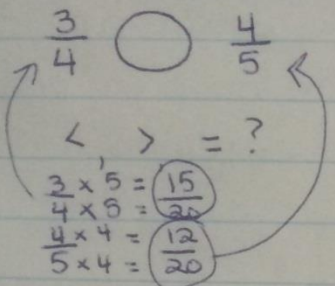 3/4 ◯ 4/5
< , > = ?
3/4 × 5/5 = 15/20
4/5 × 4/4 = 12/20